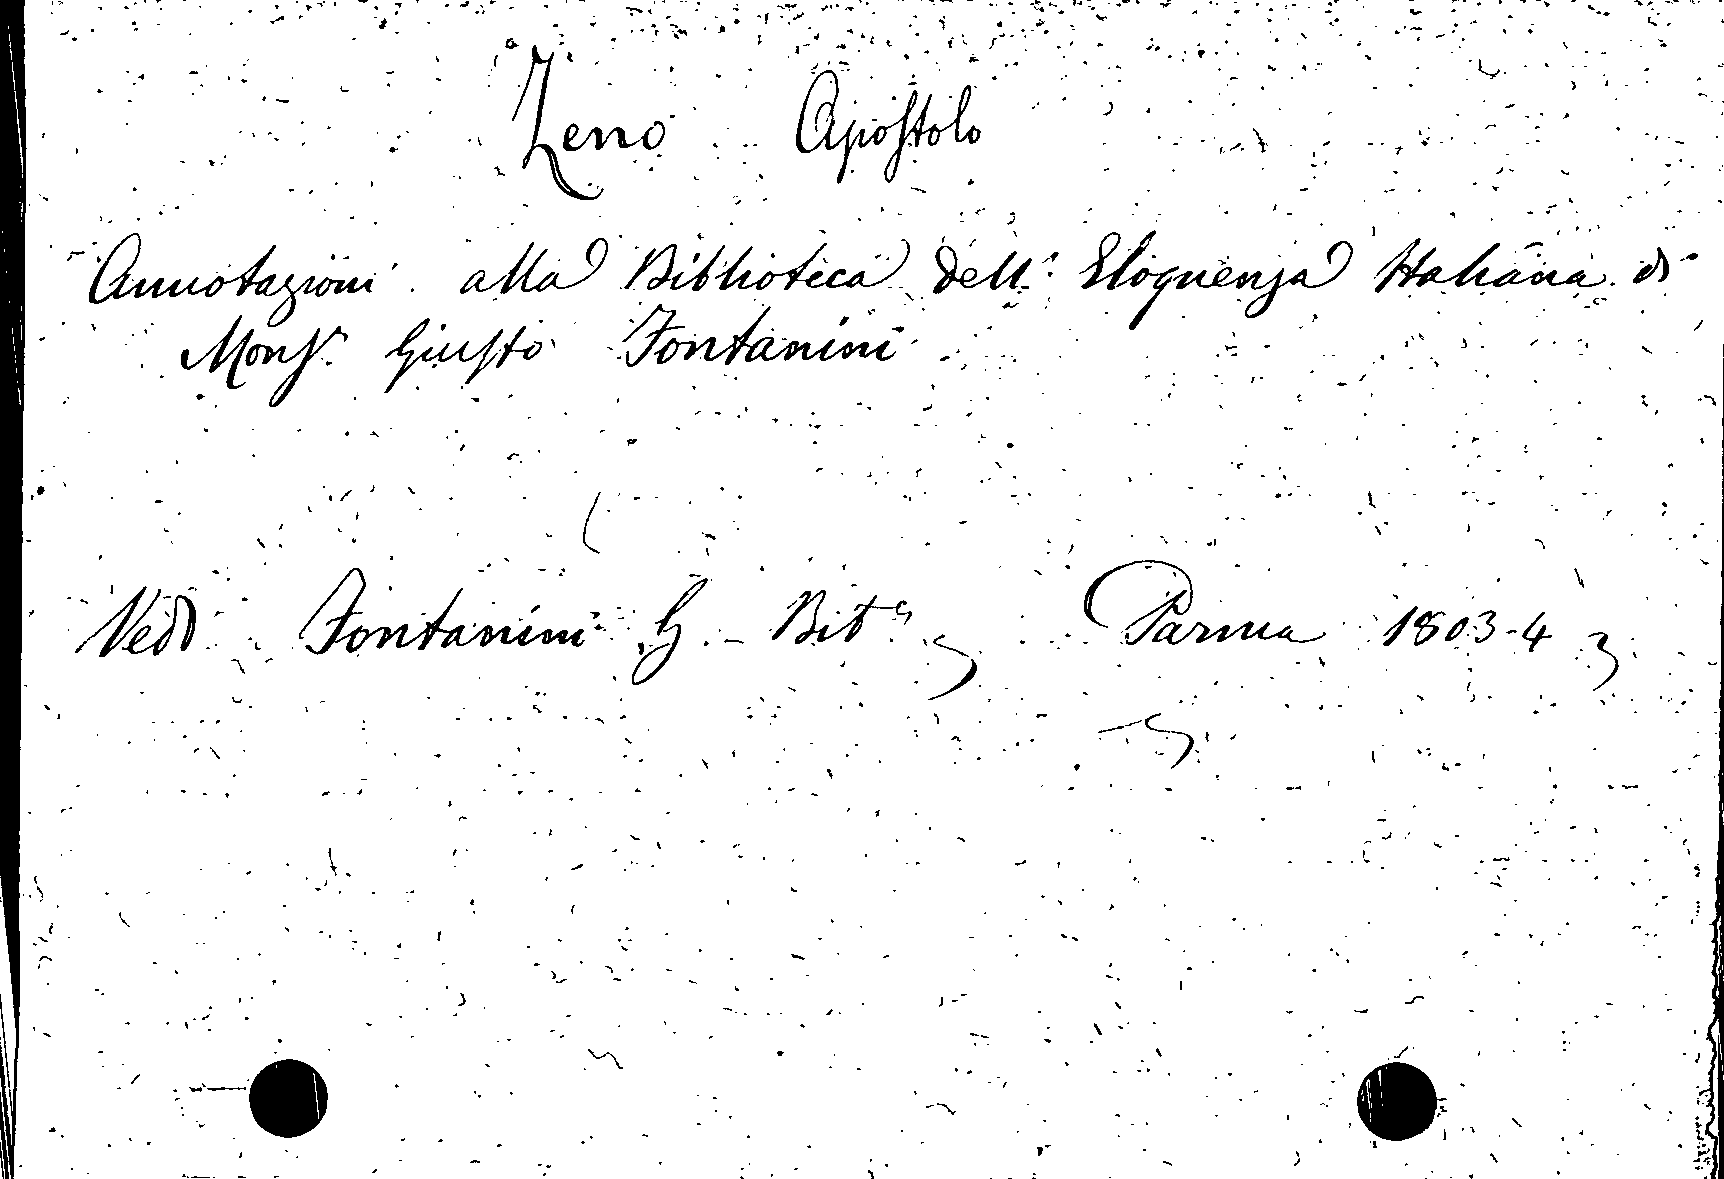 Zeno Apostolo
Annotazioni alla Biblioteca dell' Eloquenza Italiana di
Mons.r Giusto Fontanini
Vedi Fontanini G. - Bib.ca Parma 1803-4